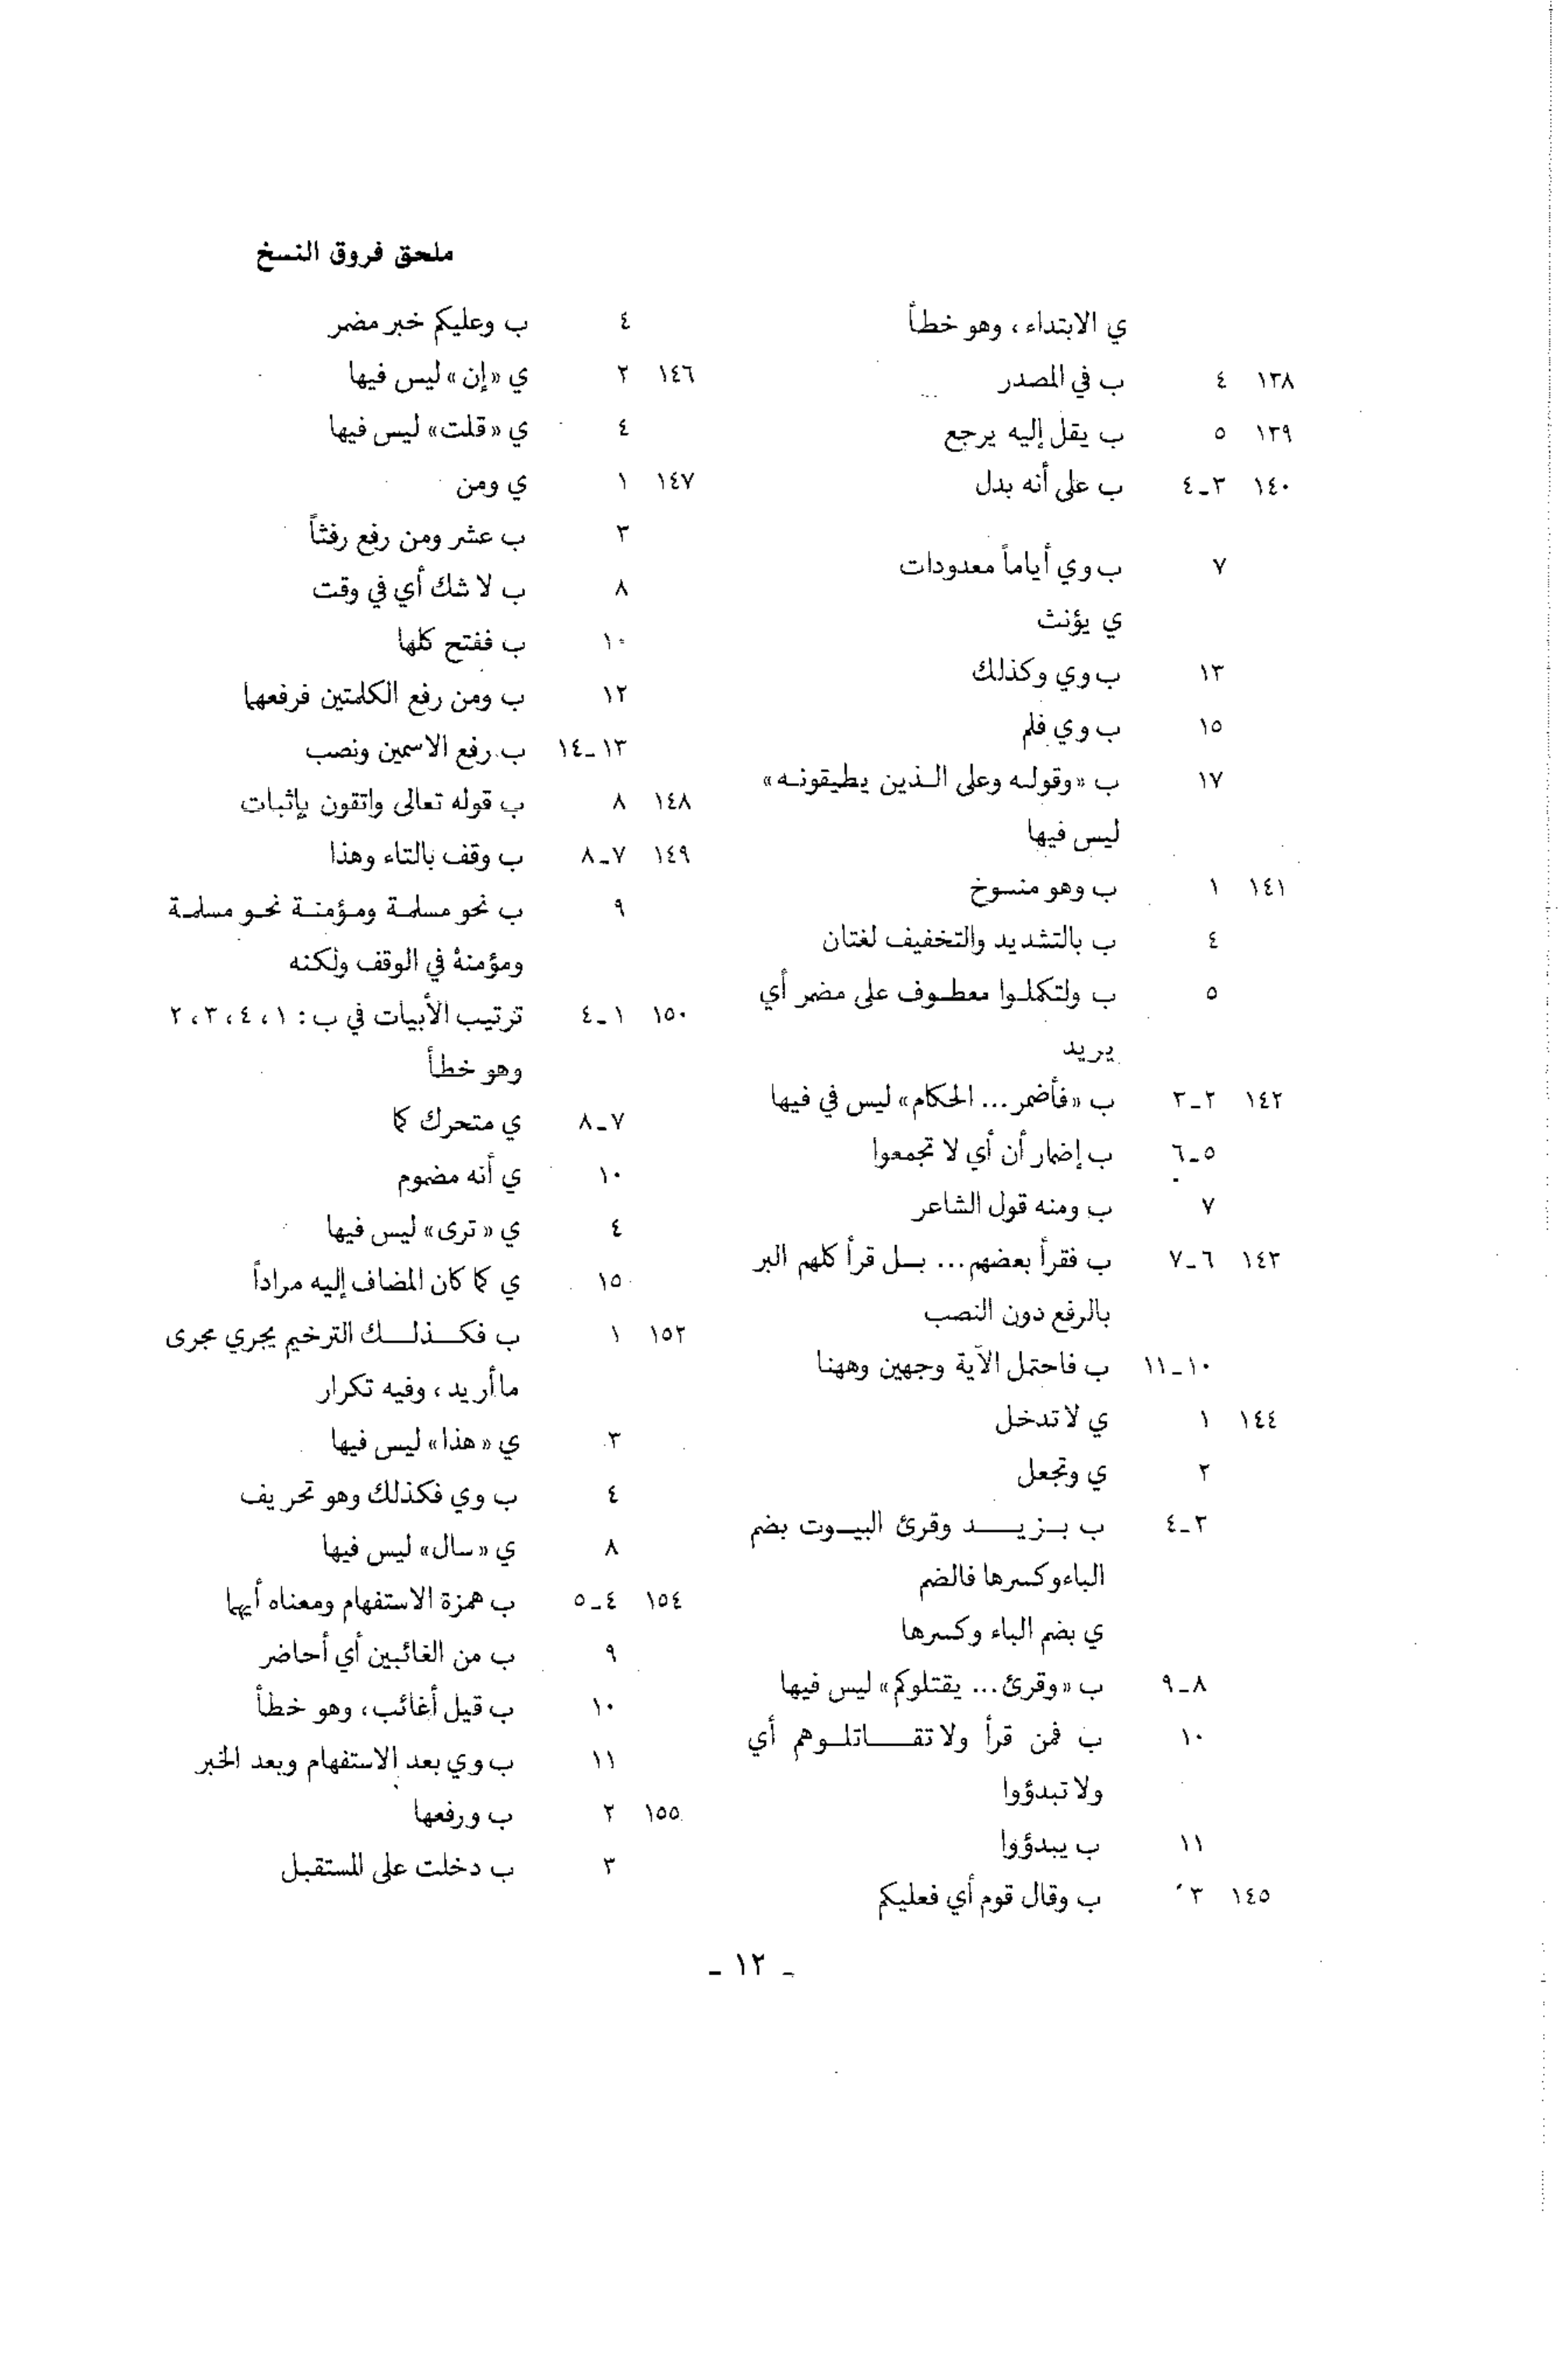 ملحق فروق النسخ
ي الابتداء ، وهو خطأ
١٣٨ ٤ ب في المصدر
١٣٩ ٥ ب يقل إليه يرجع
١٤٠ ٣ـ٤ ب على أنه بدل
٧ ب وي أياماً معدودات
ي يؤنث
١٣ ب وي وكذلك
١٥ ب وي فلم
١٧ ب «وقوله وعلى الذين يطيقونه»
ليس فيها
١٤١ ١ ب وهو منسوخ
٤ ب بالتشديد والتخفيف لغتان
٥ ب ولتكملوا معطوف على مضمر أي
يريد
١٤٢ ٢ـ٣ ب «فأضمر ... الحكام» ليس في فيها
٥ـ٦ ب إضمار أن أي لا تجمعوا
٧ ب ومنه قول الشاعر
١٤٣ ٦ـ٧ ب فقرأ بعضهم ... بل قرأ كلهم البر
بالرفع دون النصب
١٠ـ١١ ب فاحتمل الآية وجهين وههنا
١٤٤ ١ ي لا تدخل
٢ ي وتجعل
٣ـ٤ ب بزيد وقرئ البيوت بضم
الباء وكسرها فالضم
ي بضم الباء وكسرها
٨ـ٩ ب «وقرئ ... يقتلوكم» ليس فيها
١٠ ب فمن قرأ ولا تقاتلوهم أي
ولا تبدؤوا
١١ ب يبدؤوا
١٤٥ ٣ ب وقال قوم أي فعليكم
٤ ب وعليكم خبر مضمر
١٤٦ ٢ ي «إن» ليس فيها
٤ ي «قلت» ليس فيها
١٤٧ ١ ي ومن
٣ ب عشر ومن رفع رفثاً
٨ ب لا شك أي في وقت
١٠ ب ففتح كلها
١٢ ب ومن رفع الكلمتين فرفعهما
١٣ـ١٤ ب رفع الاسمين ونصب
١٤٨ ٨ ب قوله تعالى واتقون بإثبات
١٤٩ ٧ـ٨ ب وقف بالتاء وهذا
٩ ب نحو مسلمة ومؤمنة نحو مسلمة
ومؤمنة في الوقف ولكنه
١٥٠ ١ـ٤ ترتيب الأبيات في ب : ١ ، ٤ ، ٣ ، ٢
وهو خطأ
٧ـ٨ ي متحرك كما
١٠ ي أنه مضموم
٤ ي «ترى» ليس فيها
١٥ ي كما كان المضاف إليه مراداً
١٥٢ ١ ب فكذلك الترخيم يجري مجرى
ما أريد ، وفيه تكرار
٣ ي «هذا» ليس فيها
٤ ب وي فكذلك وهو تحريف
٨ ي «سال» ليس فيها
١٥٤ ٤ـ٥ ب همزة الاستفهام ومعناه أيهما
٩ ب من الغائبين أي أحاضر
١٠ ب قيل أغائب ، وهو خطأ
١١ ب وي بعد الاستفهام وبعد الخبر
١٥٥ ٢ ب ورفعها
٣ ب دخلت على المستقبل
ـ ١٢ ـ